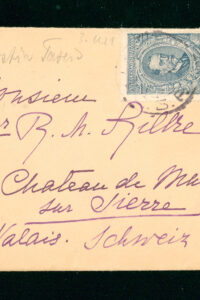 onsieur
R. M. Rilke
Chateau de Mu
sur Sierre
Valais. Schweiz